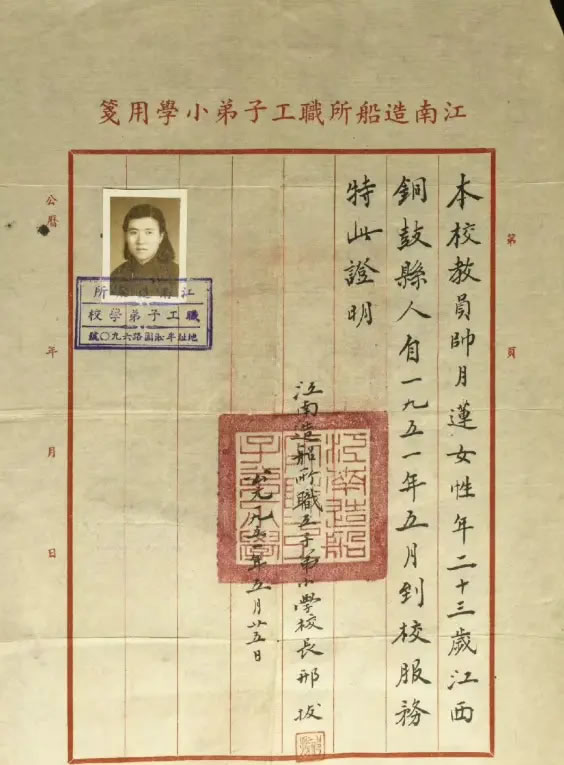 江南造船所職工子弟小學用箋
第 頁
本校教員帥月蓮女性年二十三歲江西
銅鼓縣人自一九五一年五月到校服務
特此證明
江南造船所職工子弟小學校長邢 拔
公元一九五一年五月廿五日
江南造船所職工子弟小學
江南造船所
職工子弟學校
地址半淞園路六九〇號
公曆 年 月 日